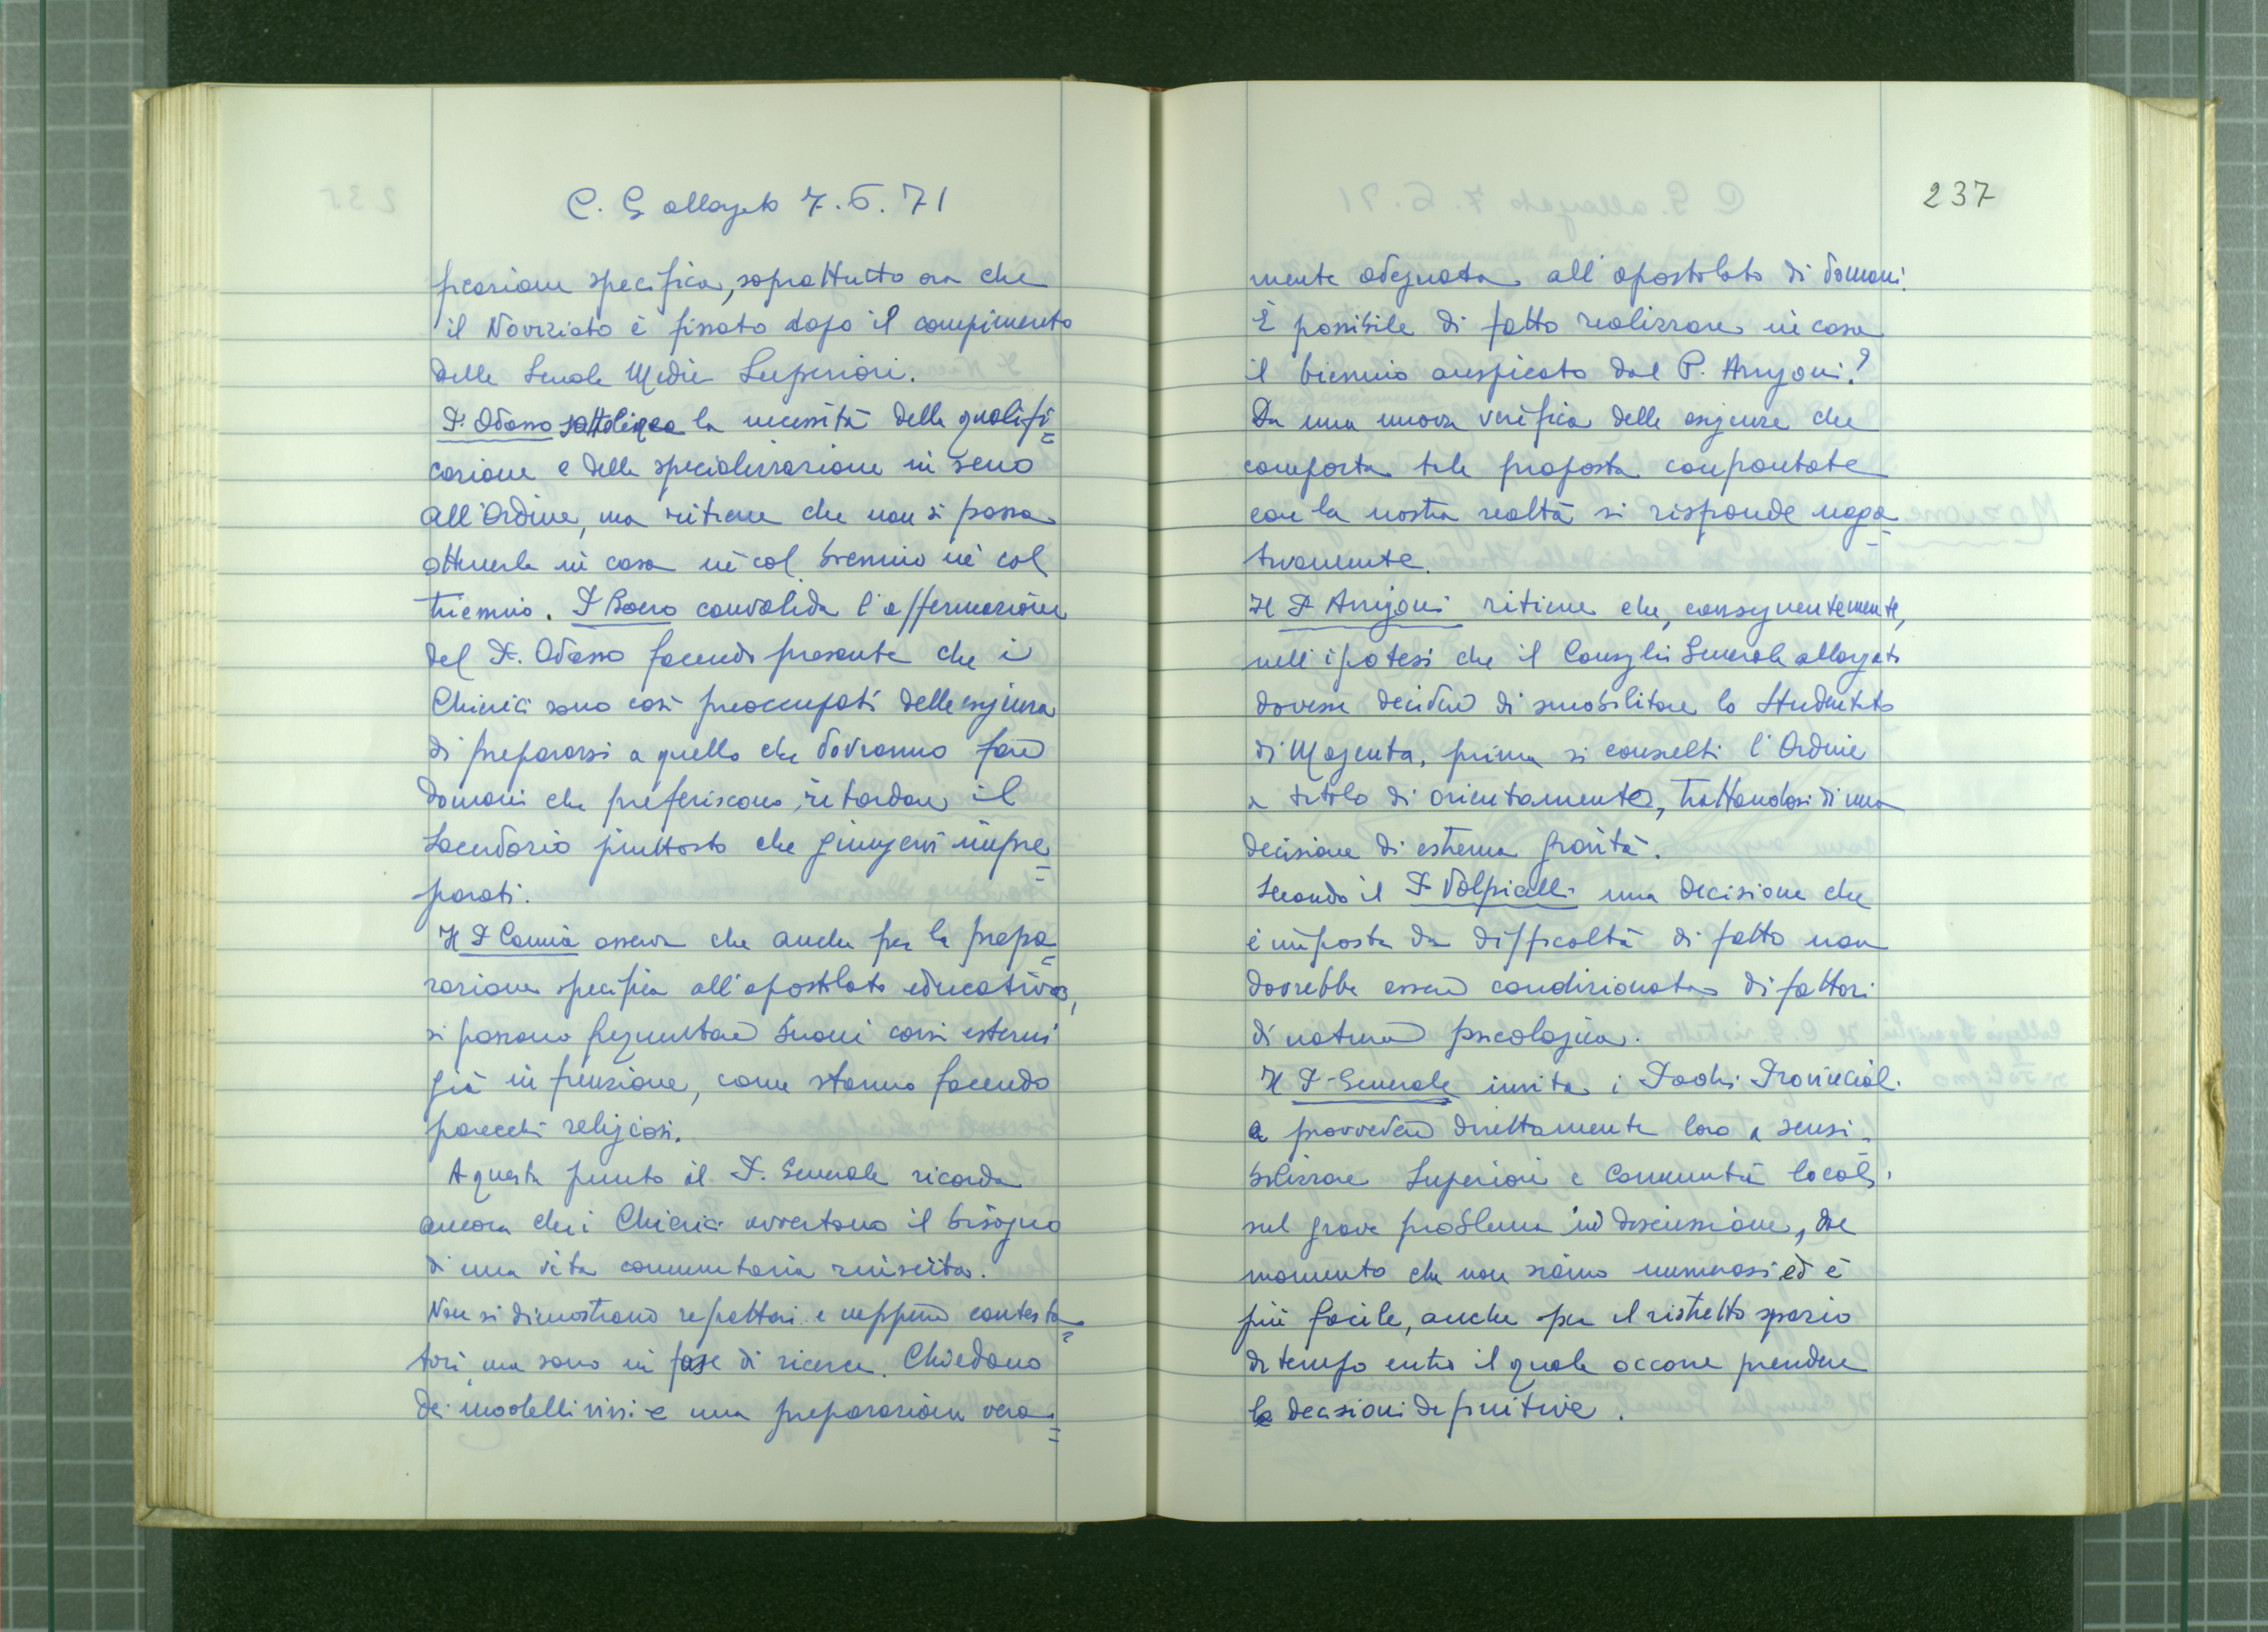 C. G allargato 7.6.71
ficazione specifica, soprattutto ora che
il Noviziato è fissato dopo il compimento
delle Scuole Medie Superiori.
P. Odasso sottolinea la necessità della qualifi=
cazione e della specializzazione in seno
all'Ordine, ma ritiene che non si possa
ottenerla in casa nè col biennio nè col
triennio. P Boero convalida l'affermazione
del P. Odasso facendo presente che i
Chierici sono così preoccupati della esigenza
di prepararsi a quello che dovranno fare
domani che preferiscono ritardare il
Sacerdozio piuttosto che giungervi impre=
parati.
Il P Cannia osserva che anche per la prepa=
razione specifica all'apostolato educativo,
si possono frequentare buoni corsi esterni
già in funzione, come stanno facendo
parecchi religiosi.
A questo punto il P. Generale ricorda
ancora che i Chierici avvertono il bisogno
di una vita comunitaria riuscita.
Non si dimostrano refrattari e neppure contesta=
tori, ma sono in fase di ricerca. Chiedono
dei modelli vivi e una preparazione vera=
237
mente adeguata all'apostolato di domani.
È possibile di fatto realizzare in casa
il biennio auspicato dal P. Arrigoni?
Da una nuova verifica delle esigenze che
comporta tale proposta confrontate
con la nostra realtà si risponde nega=
tivamente.
Il P Arrigoni ritiene che, conseguentemente,
nell'ipotesi che il Consiglio Generale allargato
dovesse decidere di smobilitare lo Studentato
di Magenta, prima si consulti l'Ordine
a titolo di orientamento, trattandosi di una
decisione di estrema gravità.
Secondo il P Volpicelli una decisione che
è imposta da difficoltà di fatto non
dovrebbe essere condizionata di fattori
di natura psicologica.
Il P. Generale invita i Padri Provinciali
a provvedere direttamente loro a sensi=
bilizzare Superiori e Comunità locali
sul grave problema in discussione, dal
momento che non siamo numerosi ed è
più facile, anche per il ristretto spazio
di tempo entro il quale occorre prendere
le decisioni definitive.